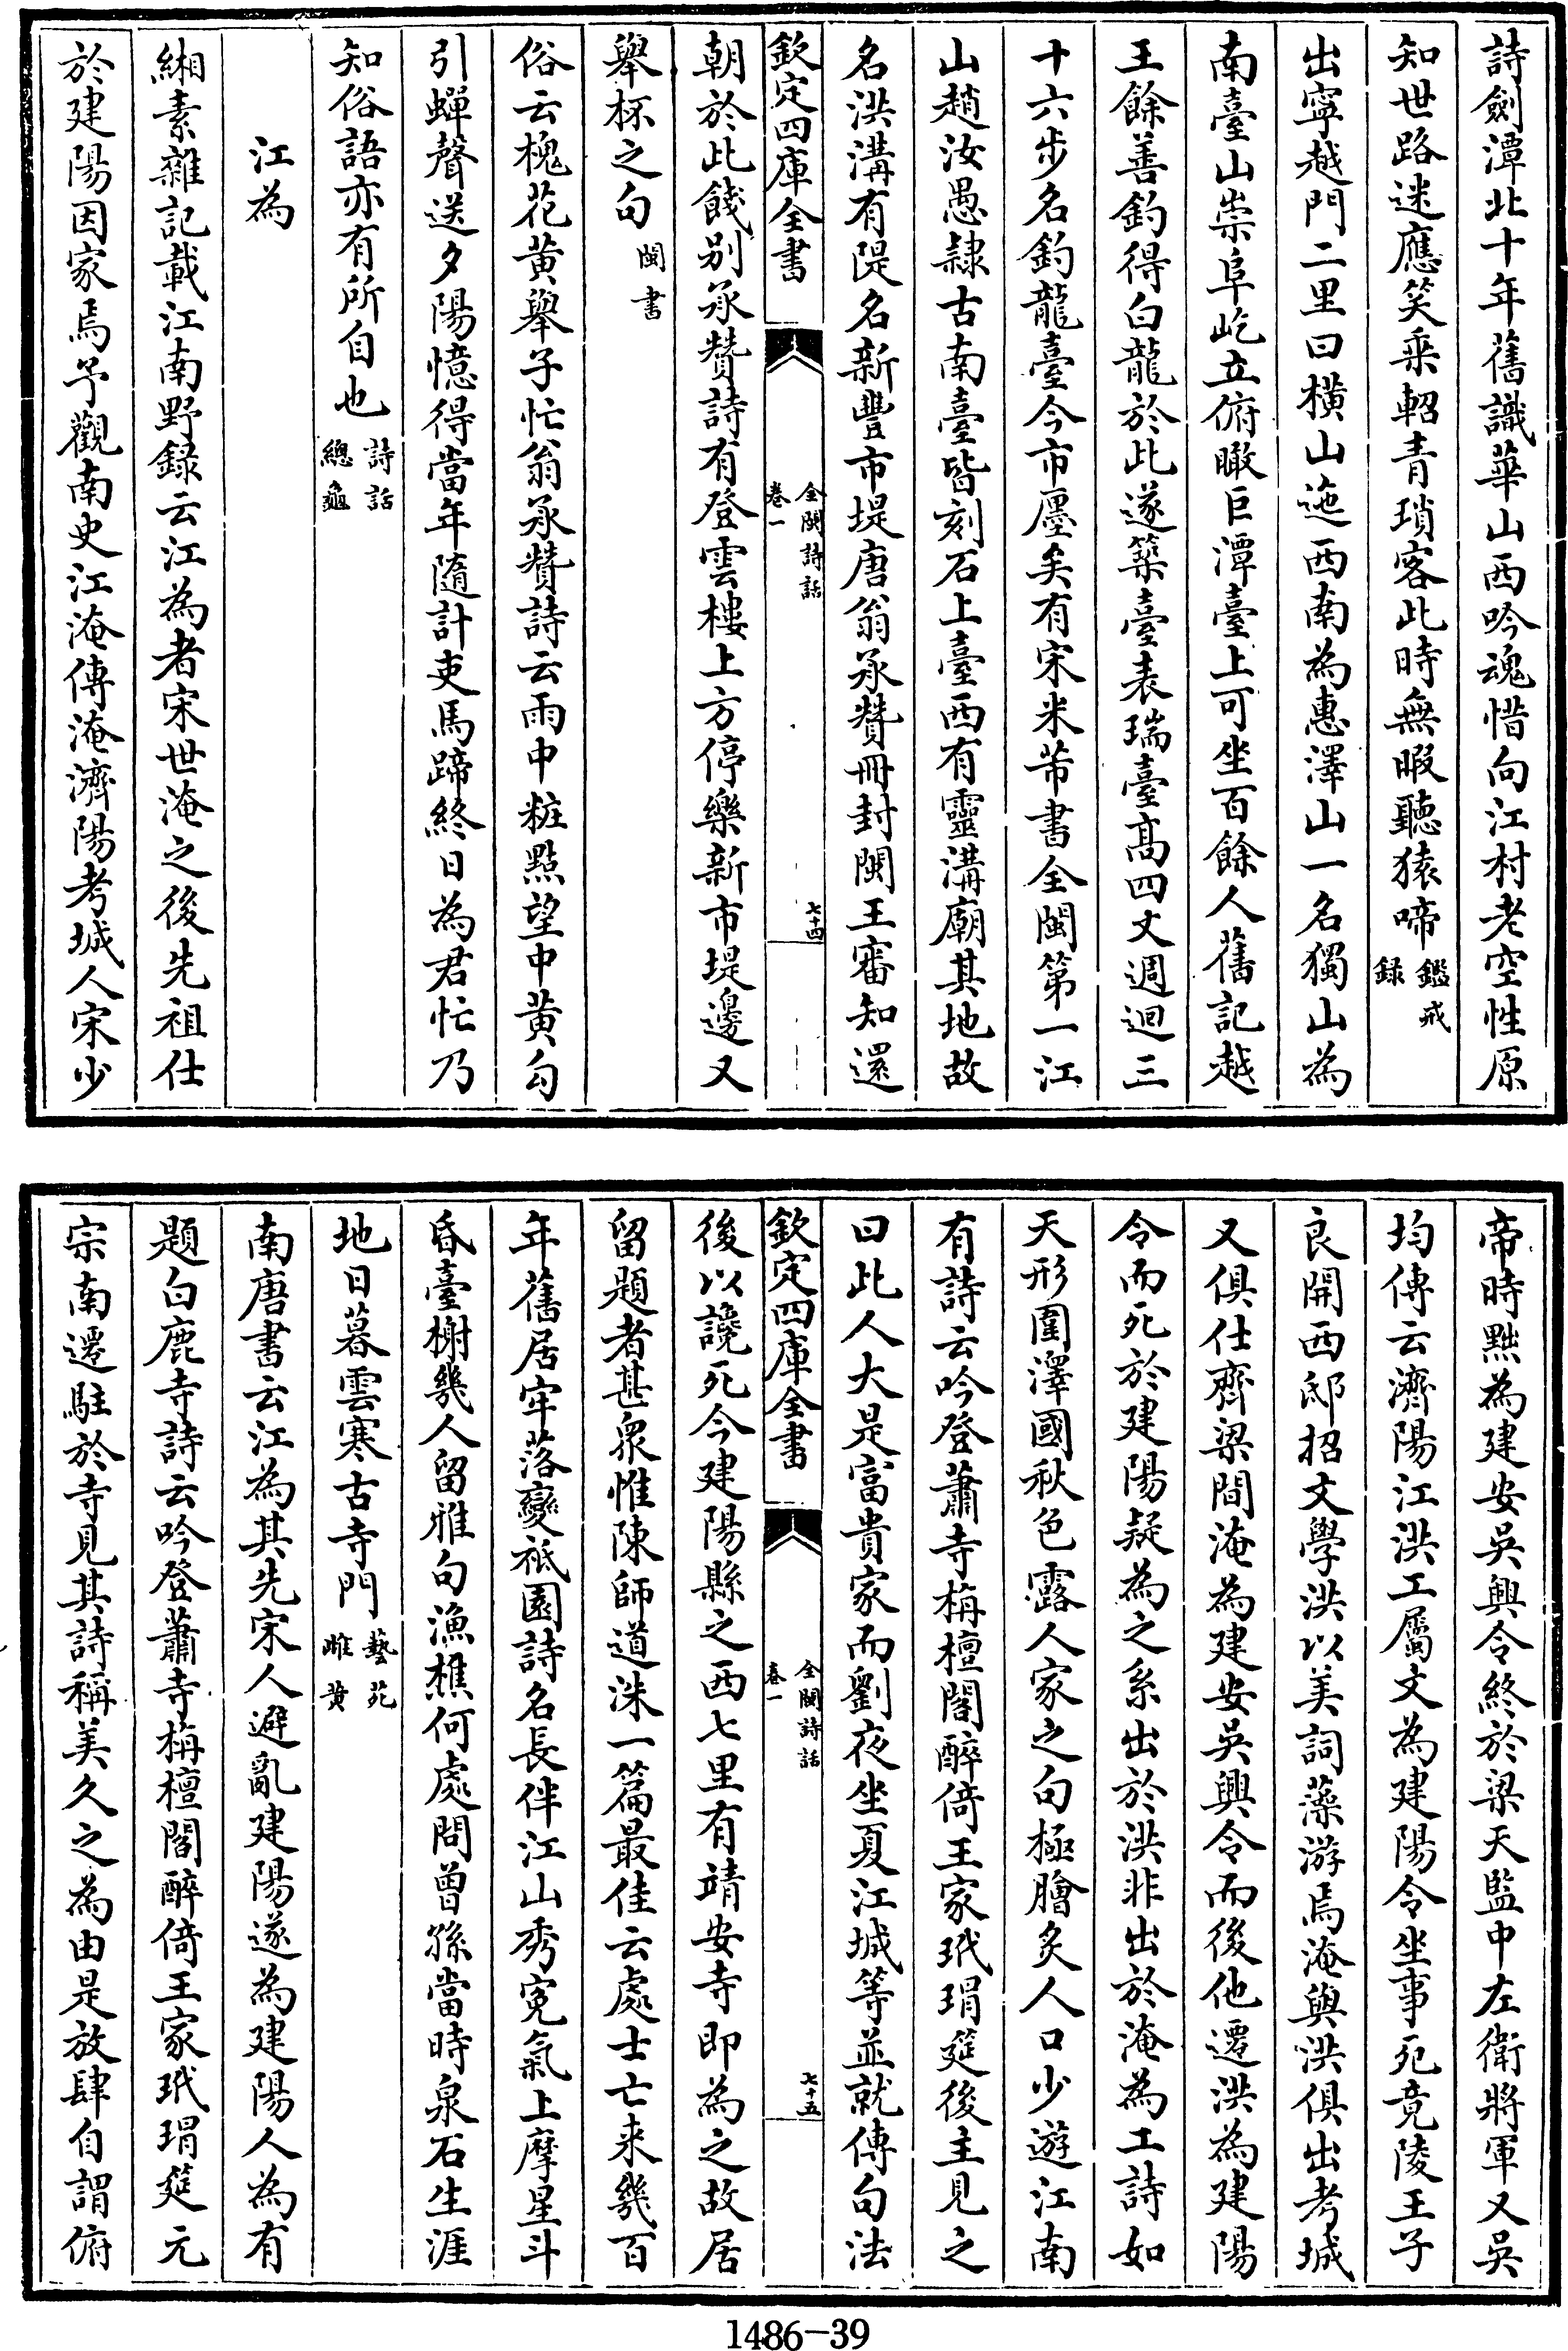 詩劍潭北十年舊識華山西吟魂惜向江村老空性原
知世路迷應笑乘軺青瑣客此時無暇聽猿啼鑑戒錄
出寧越門二里曰橫山迤西南為惠澤山一名獨山為
南臺山崇阜屹立俯瞰巨潭臺上可坐百餘人舊記越
王餘善釣得白龍於此遂築臺表瑞臺高四丈週迴三
十六步名釣龍臺今市廛矣有宋米芾書全閩第一江
山趙汝愚隸古南臺皆刻石上臺西有靈溝廟其地故
名洪溝有隄名新豐市堤唐翁承贊冊封閩王審知還
欽定四庫全書
全閩詩話
卷一
七十四
朝於此餞别承贊詩有登雲樓上方停樂新市堤邊又
舉杯之句閩書
俗云槐花黃舉子忙翁承贊詩云雨中粧點望中黃勾
引蟬聲送夕陽憶得當年隨計吏馬蹄終日為君忙乃
知俗語亦有所自也詩話總龜
江為
緗素雜記載江南野録云江為者宋世淹之後先祖仕
於建陽因家焉予觀南史江淹傳淹濟陽考城人宋少
帝時黜為建安吳興令終於梁天監中左衛將軍又吳
均傳云濟陽江洪工屬文為建陽令坐事死竟陵王子
良開西邸招文學洪以美詞藻游焉淹與洪俱出考城
又俱仕齊梁間淹為建安吳興令而後他遷洪為建陽
令而死於建陽疑為之系出於洪非出於淹為工詩如
天形圍澤國秋色露人家之句極膾炙人口少遊江南
有詩云吟登蕭寺栴檀閣醉倚王家玳瑁筵後主見之
曰此人大是富貴家而劉夜坐夏江城等並就傳句法
欽定四庫全書
全閩詩話
卷一
七十五
後以讒死今建陽縣之西七里有靖安寺即為之故居
留題者甚衆惟陳師道洙一篇最佳云處士亡來幾百
年舊居牢落變祗園詩名長伴江山秀寃氣上摩星斗
昏臺榭幾人留雅句漁樵何處問曾孫當時泉石生涯
地日暮雲寒古寺門藝苑雌黃
南唐書云江為其先宋人避亂建陽遂為建陽人為有
題白鹿寺詩云吟登蕭寺栴檀閣醉倚王家玳瑁筵元
宗南遷駐於寺見其詩稱美久之為由是放肆自謂俯
1486-39